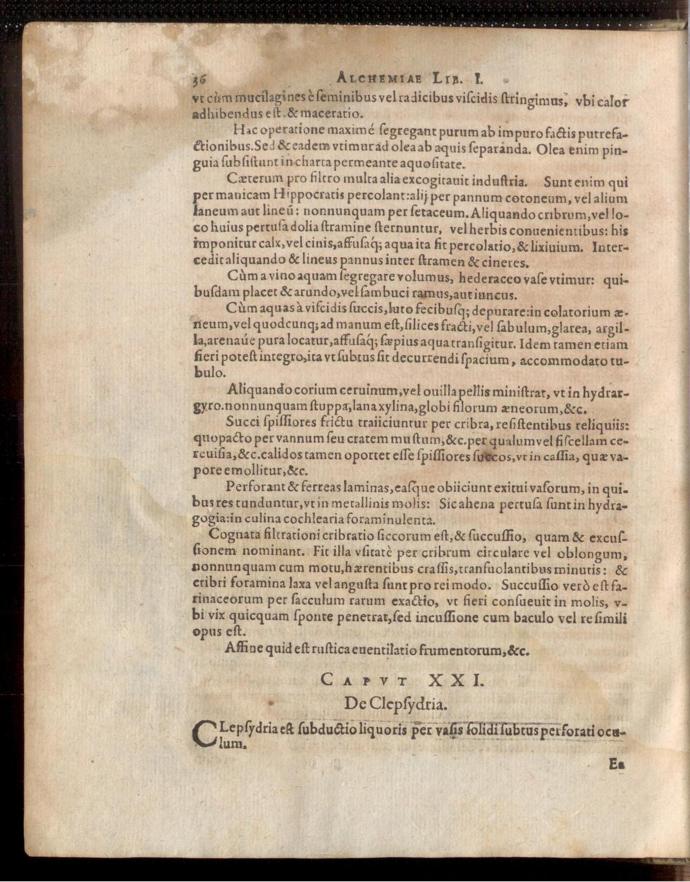 36 ALCHEMIAE LIB. I.
vt cùm mucilagines è ſeminibus vel radicibus viſcidis ſtringimus, vbi calor
adhibendus eſt. & maceratio.
Hac operatione maximè ſegregant purum ab impuro factis putrefa-
ctionibus. Sed & eadem vtimur ad olea ab aquis ſeparanda. Olea enim pin-
guia ſubſiſtunt in charta permeante aquoſitate.
Cæterum pro filtro multa alia excogitauit induſtria. Sunt enim qui
per manicam Hippocratis percolant: alij per pannum cotoneum, vel alium
laneum aut lineũ: nonnunquam per ſetaceum. Aliquando cribrum, vel lo-
co huius pertuſa dolia ſtramine ſternuntur, vel herbis conuenientibus: his
imponitur calx, vel cinis, affuſaq́; aqua ita fit percolatio, & lixiuium. Inter-
cedit aliquando & lineus pannus inter ſtramen & cineres.
Cùm a vino aquam ſegregare volumus, hederacco vaſe vtimur: qui-
buſdam placet & arundo, vel ſambuci ramus, aut iuncus.
Cùm aquas à viſcidis ſuccis, luto fecibuſq; depurare: in colatorium æ-
neum, vel quodcunq; ad manum eſt, ſilices fracti, vel ſabulum, glarea, argil-
la, arenaúe pura locatur, affuſaq́; ſæpius aqua tranſigitur. Idem tamen etiam
fieri poteſt integro, ita vt ſubtus ſit decurrendi ſpacium, accommodato tu-
bulo.
Aliquando corium ceruinum, vel ouilla pellis miniſtrat, vt in hydrar-
gyro. nonnunquam ſtuppa, lana xylina, globi filorum æneorum, &c.
Succi ſpiſſiores frictu traiiciuntur per cribra, reſiſtentibus reliquiis:
quo pacto per vannum ſeu cratem muſtum, &c. per qualum vel fiſcellam ce-
reuiſia, &c. calidos tamen oportet eſſe ſpiſſiores ſuccos, vt in caſſia, quæ va-
pore emollitur, &c.
Perforant & ferreas laminas, eaſque obiiciunt exitui vaſorum, in qui-
bus res tunduntur, vt in metallinis molis: Sic ahena pertuſa ſunt in hydra-
gogia: in culina cochlearia foraminulenta.
Cognata filtrationi cribratio ſiccorum eſt, & ſuccuſſio, quam & excuſ-
ſionem nominant. Fit illa vſitatè per cribrum circulare vel oblongum,
nonnunquam cum motu, hærentibus craſſis, tranſuolantibus minutis: &
cribri foramina laxa vel anguſta ſunt pro rei modo. Succuſſio verò eſt fa-
rinaceorum per ſacculum rarum exactio, vt fieri conſueuit in molis, v-
bi vix quicquam ſponte penetrat, ſed incuſſione cum baculo vel re ſimili
opus eſt.
Affine quid eſt ruſtica euentilatio frumentorum, &c.
CAPVT XXI.
De Clepſydria.
CLepſydria eſt ſubductio liquoris per vaſis ſolidi ſubtus perforati ocu-
lum.
Ea